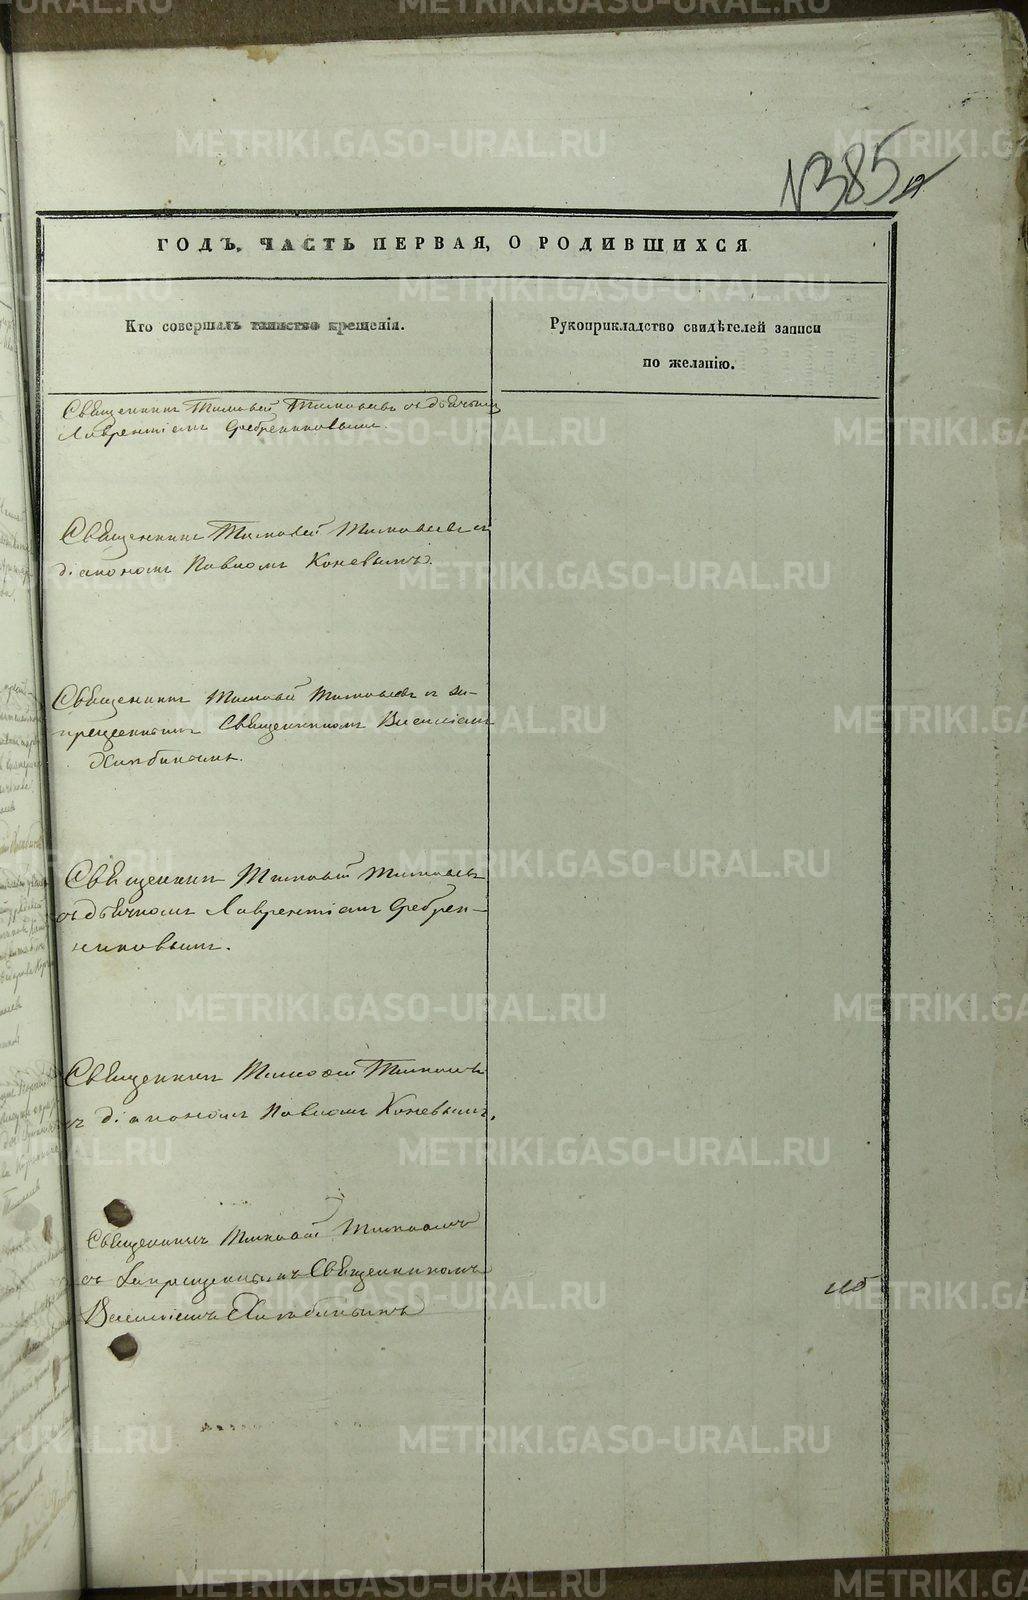 №385
ГОДЪ, ЧАСТЬ ПЕРВАЯ, О РОДИВШИХСЯ
Кто совершалъ таинство крещенія.
Рукоприкладство свидѣтелей записи
по желанію.
Священникъ Тимоѳей Тимоѳеевъ съ дьячкомъ
Лаврентіемъ Серебренниковымъ.
Священникъ Тимоѳей Тимоѳеевъ съ
діакономъ Павломъ Коневымъ.
Священникъ Тимоѳей Тимоѳеевъ съ за-
прещеннымъ Священникомъ Василіемъ
Хлѣбинымъ.
Священникъ Тимоѳей Тимоѳеевъ
съ дьячкомъ Лаврентіемъ Серебрен-
никовымъ.
Священникъ Тимоѳей Тимоѳеевъ
съ діакономъ Павломъ Коневымъ.
Священникъ Тимоѳей Тимоѳеевъ
съ Запрещеннымъ Священникомъ
Василіемъ Хлѣбинымъ
METRIKI.GASO-URAL.RU